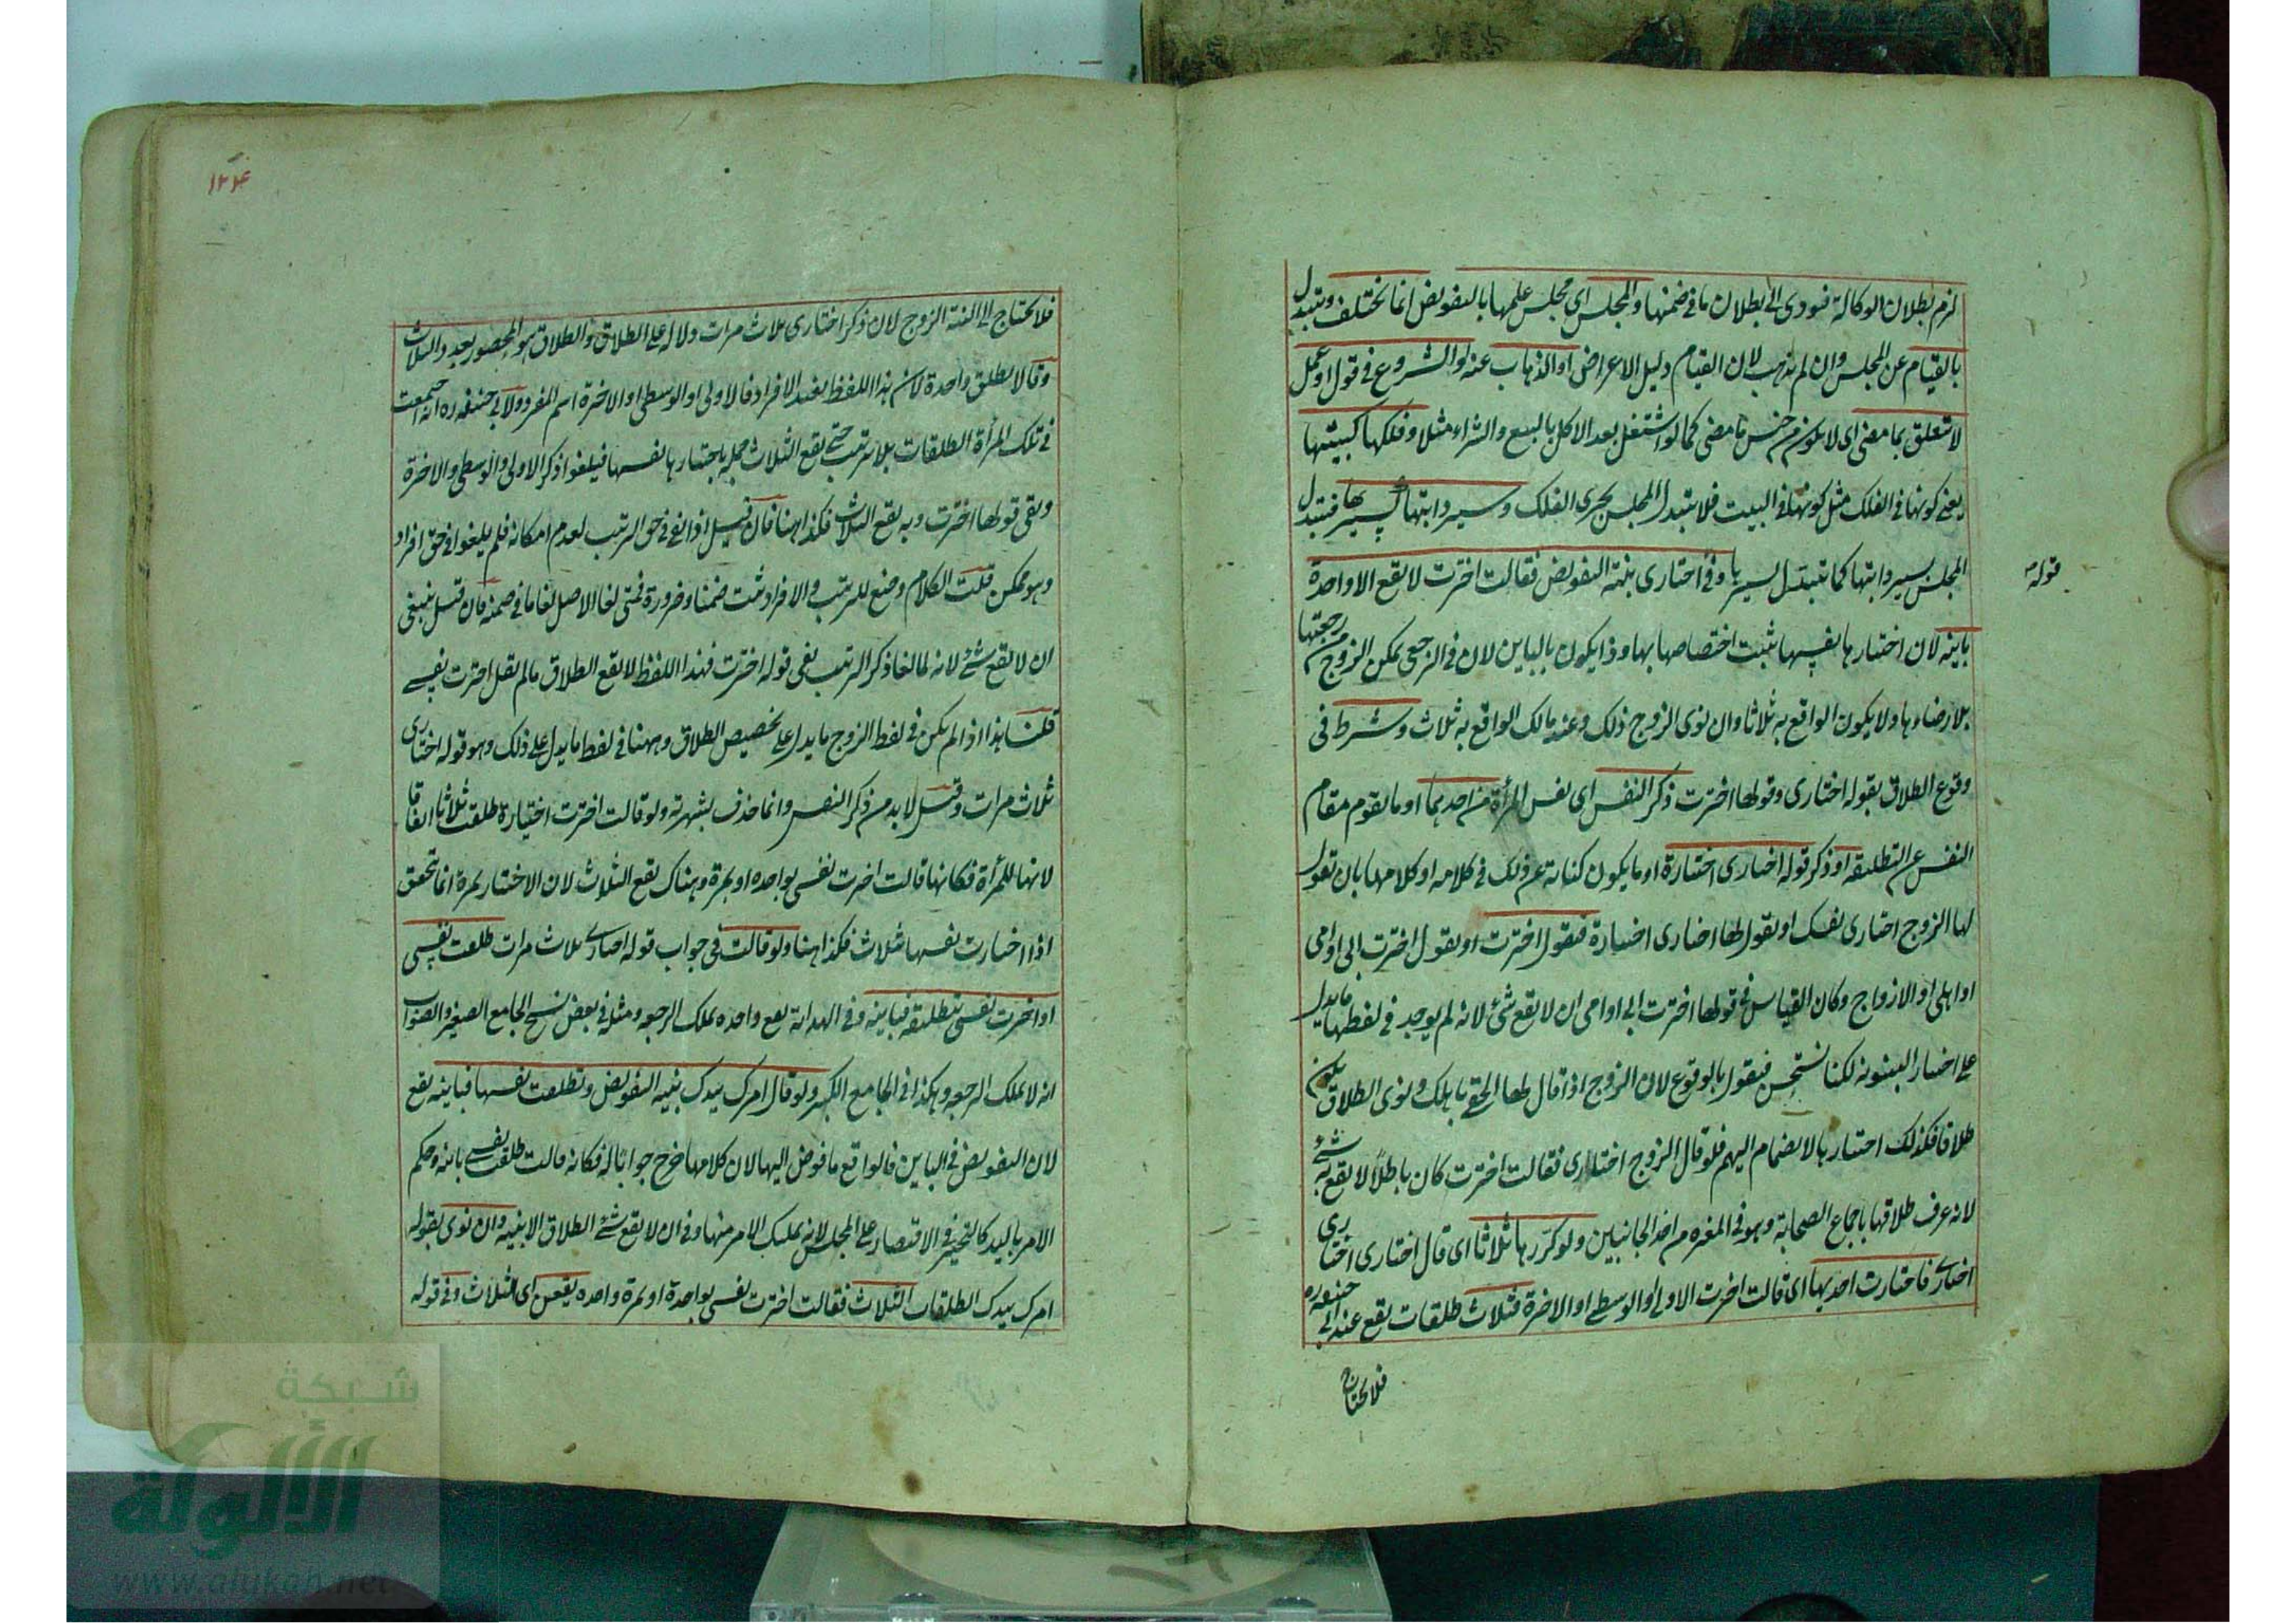 لزم بطلان الوكالة فيودى الى بطلان ما فى ضمنها والمجلس اى مجلس علمها بالتفويض انما يختلف ويتبدل
بالقيام عن المجلس وان لم يذهب لان القيام دليل الاعراض او الذهاب عنه او الشروع فى قول او عمل
لا يتعلق بما مضى اى لا يكون من جنس ما مضى كما لو اشتغل بعد الاكل بالبيع والشراء مثلا وفلكها كبيتها
يعنى كونها فى الفلك مثل كونها فى البيت فلا يتبدل المجلس بجرى الفلك وسير دابتها كسيرها فيتبدل
المجلس بسير دابتها كما يتبدل بسيرها وفى اختارى بنية التفويض فقالت اخترت لا يقع الا واحدة
قوله
باينة لان اختيارها نفسها يثبت اختصاصها بها وذا يكون بالباين لان فى الرجعى يمكن الزوج من رجعتها
بلا رضاءها ولا يكون الواقع به ثلاثا وان نوى الزوج ذلك وعند مالك الواقع به ثلاث وشرط فى
وقوع الطلاق بقوله اختارى وقولها اخترت ذكر النفس اى نفس المرأة من احدهما او ما يقوم مقام
النفس عن التطليقة او ذكر قوله اختارى اختيارة او ما يكون كناية عن ذلك فى كلامه او كلامها بان تقول
لها الزوج اختارى نفسك او يقول لها اختارى اختيارة فتقول اخترت او يقول اخترت ابى او امى
او اهلى او الازواج وكان القياس فى قولها اخترت ابى او امى ان لا يقع شئ لانه لم يوجد فى لفظها ما يدل
على اختيار البينونة لكنا نستحسن فيقول بالوقوع لان الزوج اذا قال لها الحقى باهلك ونوى الطلاق يكون
طلاقا فكذلك اختيارها لانضمام اليهم فلو قال الزوج اختارى فقالت اخترت كان باطلا لا يقع به شئ
لانه عرف طلاقها باجماع الصحابة وهو فى المفسرة من احد الجانبين ولو كررها ثلاثا اى قال اختارى اختارى
اختارى فاختارت احديها اى قالت اخترت الاولى او الوسطى او الاخرة فثلاث طلقات يقع عند ابى حنيفة ره
فلا يحتاج
١٢٤
فلا يحتاج الى النية الزوج لان ذكر اختارى ثلاث مرات دلالة على الطلاق والطلاق هو المحصور بعدد والثلاث
وقالا يطلق واحدة لان هذا اللفظ يفيد الافراد فالاولى او الوسطى او الاخرة اسم المفرد ولابى حنيفة ره انه اجتمعت
فى تلك المرأة الطلقات بلا ترتيب حتى يقع الثلاث جملة باختيارها نفسها فيلغوا ذكر الاولى والوسطى والاخرة
وبقى قولها اخترت وبه يقع الثلاث فكذا هنا فان قيل اذا لغى فى حق الترتيب لعدم امكانه فلم يلغوا فى حق افراد
وهو ممكن قلت الكلام وضع للترتيب والافراد ثبت ضمنا وضرورة فمتى لغا الاصل لغا ما فى ضمنه فان قيل ينبغى
ان لا يقع شئ لانه لما لغا ذكر الترتيب بقى قوله اخترت فبهذا اللفظ لا يقع الطلاق ما لم يقل اخترت نفسى
قلنا هذا اذا لم يكن فى لفظ الزوج ما يدل على تخصيص الطلاق وههنا فى لفظ ما يدل على ذلك وهو قوله اختارى
ثلاث مرات وقيل لا بد من ذكر النفس وانما حذف بشهرته ولو قالت اخترت اختيارة طلقت ثلاثا اتفاقا
لانها للمرأة فكانها قالت اخترت نفسى بواحدة او بمرة وهناك يقع الثلاث لان الاختيار بمرة انما تحقق
اذا اختارت نفسها بثلاث فكذا هنا ولو قالت فى جواب قوله اختارى ثلاث مرات طلقت نفسى
او اخترت نفسى بتطليقة فباينة وفى الهداية يقع واحدة يملك الرجعة ومثله فى بعض نسخ الجامع الصغير والصواب
انه لا يملك الرجعة وهكذا فى الجامع الكبير ولو قال امرك بيدك بنية التفويض وتطلقت نفسها فباينة يقع
لان التفويض فى الباين فالواقع ما فوض اليها لان كلامها خرج جوابا له فكانه قالت طلقت نفسى باينة وحكم
الامر باليد كالتخيير فى الاقتصار على المجلس لانه تمليك الامر منها وفى ان لا يقع شئ الطلاق الا بنية وان نوى بقوله
امرك بيدك الطلقات الثلاث فقالت اخترت نفسى بواحدة او بمرة واحدة يقعن اى الثلاث وفى قوله
شبكة
الألوكة
www.alukah.net